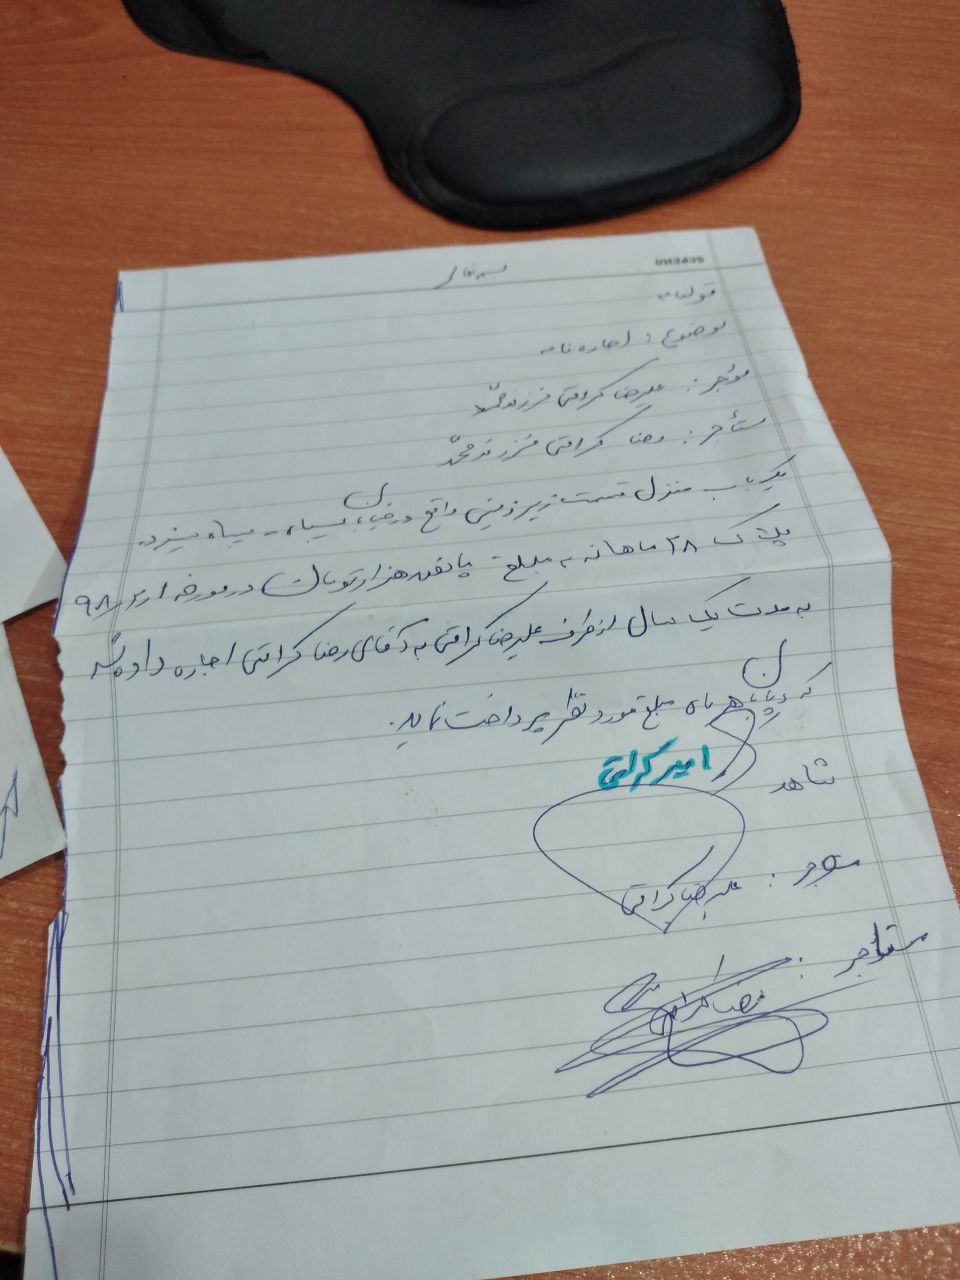 SEPEHR
بسمه تعالی
قولنامه
موضوع : اجاره نامه
مؤجر : علیرضا کرامتی فرزند محمد
مستأجر : رضا کرامتی فرزند محمد
یک باب منزل قسمت زیرزمینی واقع در خیابان سپاه - سپاه
پلاک ۲۸ ماهانه به مبلغ پانصد هزار تومان در مورخه
به مدت یک سال از طرف علیرضا کرامتی به آقای رضا کرامتی اجاره داده شد
که پایان هر ماه مبلغ مورد نظر پرداخت نماید.
شاهد امیر کرامتی
موجر : علیرضا کرامتی
مستأجر : رضا کرامتی